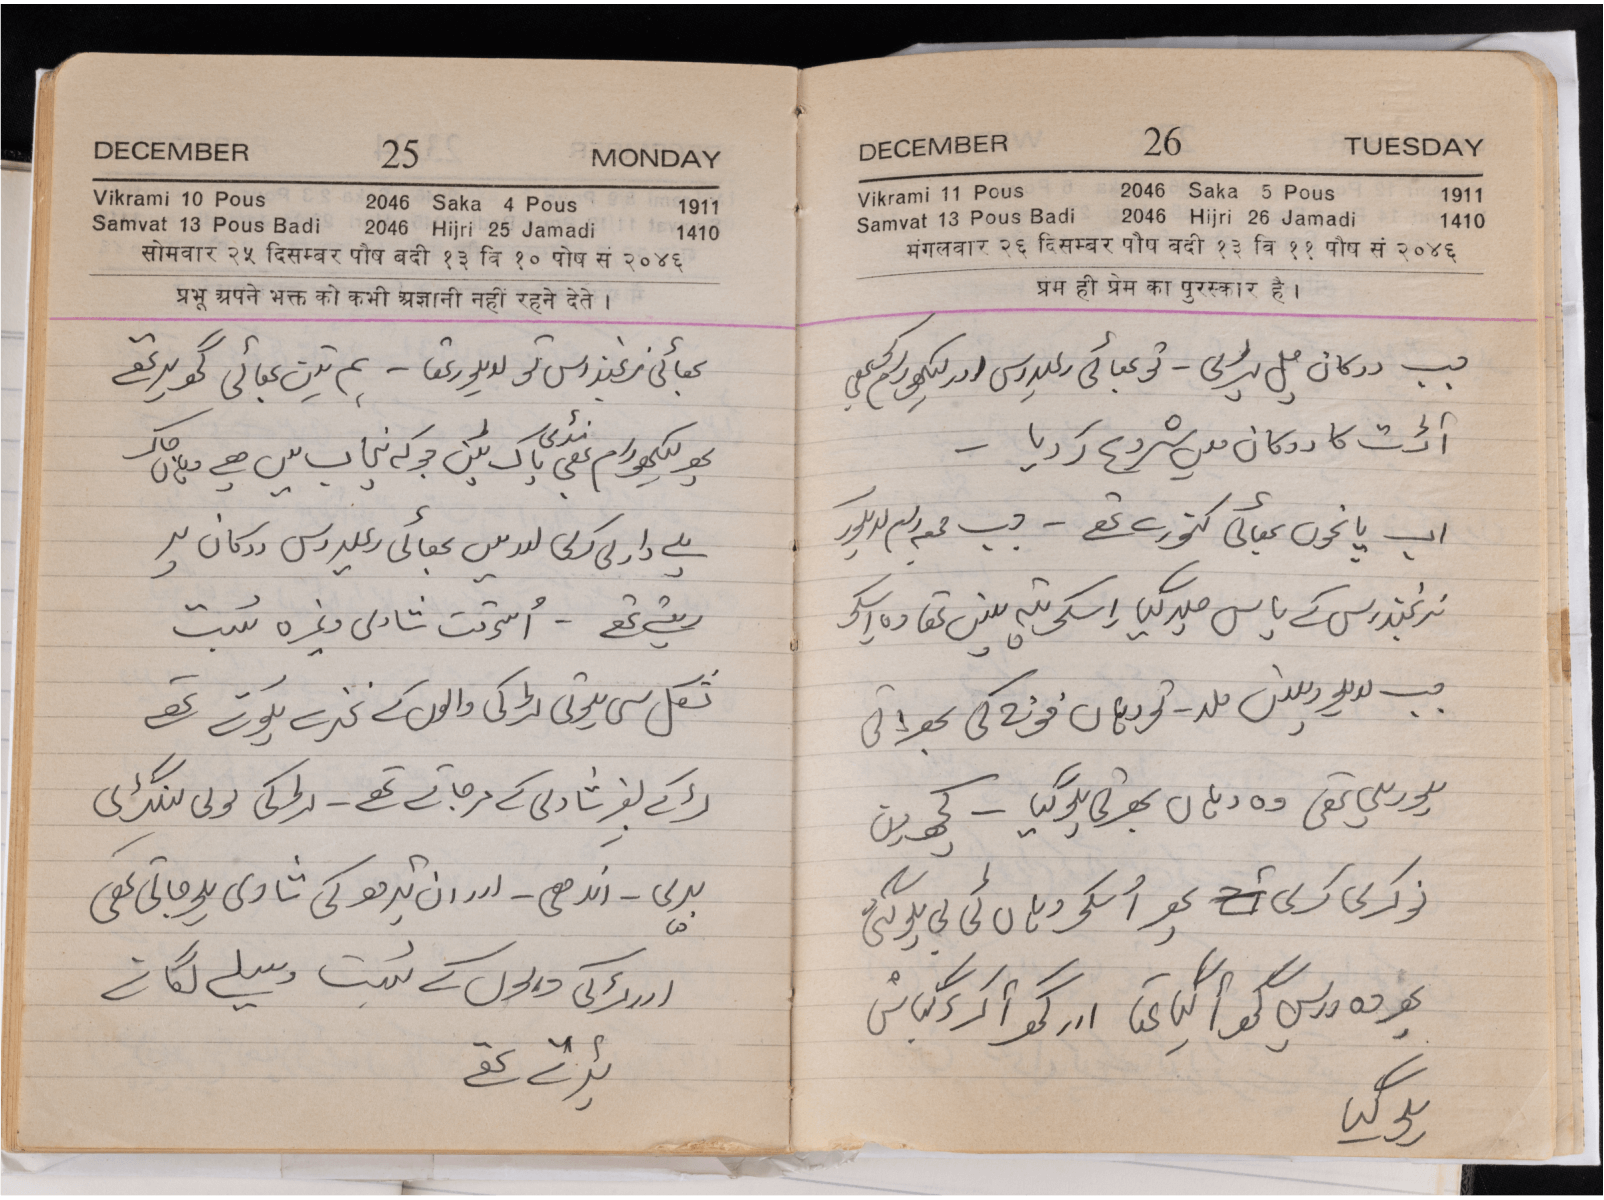 DECEMBER 25 MONDAY
Vikrami 10 Pous 2046 Saka 4 Pous 1911
Samvat 13 Pous Badi 2046 Hijri 25 Jamadi 1410
सोमवार २५ दिसम्बर पौष बदी १३ वि १० पोष सं २०४६
प्रभू अपने भक्त को कभी अज्ञानी नहीं रहने देते ।
بھائی تو لاہور تھا - ہم تین بھائی گھر پر تھے
پھر لیکھورام بھی پاک پٹن جو کہ پنجاب میں ہے وہاں جاکر
پلے داری کری اور میں بھائی دوکان پر
بیٹھتے تھے - اُسوقت شادی وغیرہ بہت
مشکل سی ہوتی لڑکی والوں کے نخرے ہوتے تھے
لڑکے بغیر شادی کے مرجاتے تھے - لڑکی لولی لنگڑی
بہری - اندھی - اور ان کی شادی ہوجاتی تھی
اور لڑکی والوں کے بہت وسیلے لگانے
پڑتے تھے
DECEMBER 26 TUESDAY
Vikrami 11 Pous 2046 Saka 5 Pous 1911
Samvat 13 Pous Badi 2046 Hijri 26 Jamadi 1410
मंगलवार २६ दिसम्बर पौष बदी १३ वि ११ पौष सं २०४६
प्रम ही प्रेम का पुरस्कार है ।
جب دوکان چل پڑی - تو بھائی اور لیکھورام بھی
آڑت کا دوکان میں شروع کر دیا -
اب پانچوں بھائی تھے - جب لاہور
کے پاس چلا گیا اسکو پتہ نہیں تھا وہ اسکو
جب لاہور میں ملا - تو وہاں فوج کی بھرتی
ہورہی تھی وہ وہاں بھرتی ہوگیا - کچھ دن
نوکری کری پھر اُسکو وہاں ٹی بی ہوگئی
پھر وہ واپس گھر آگیا تھا اور گھر آکر
ہوگیا